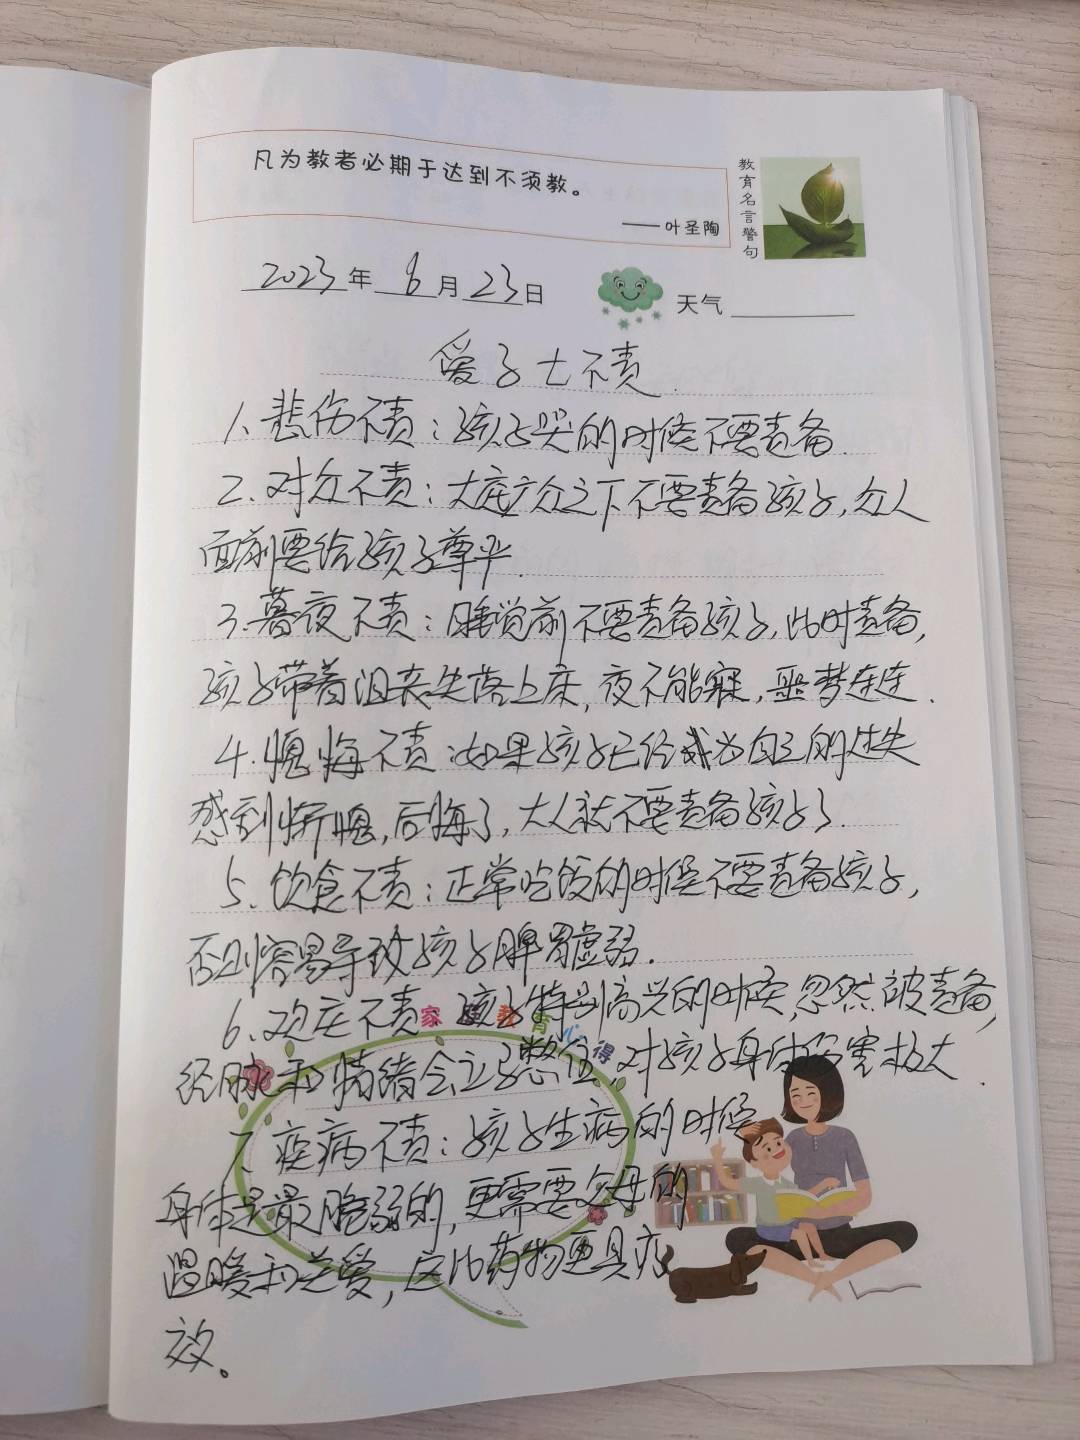 凡为教者必期于达到不须教。
——叶圣陶
教育名言警句
2023年6月23日
天气
爱子七不责
1、悲伤不责：孩子哭的时候不要责备.
2、对众不责：大庭广众之下不要责备孩子,众人
面前要给孩子尊平.
3、暮夜不责：睡觉前不要责备孩子,此时责备,
孩子带着沮丧失落上床,夜不能寐,噩梦连连.
4.愧悔不责：如果孩子已经为自己的过失
感到惭愧,后悔了,大人就不要责备孩子了.
5、饮食不责：正常吃饭的时候不要责备孩子,
否则容易导致孩子脾胃虚弱.
6.欢庆不责 孩子特别高兴的时候,忽然被责备,
家庭教育心得
经脉和情绪会立马憋住,对孩子身体伤害极大.
7、疾病不责：孩子生病的时候
身体是最脆弱的,更需要父母的
温暖和关爱,这比药物更具疗
效。